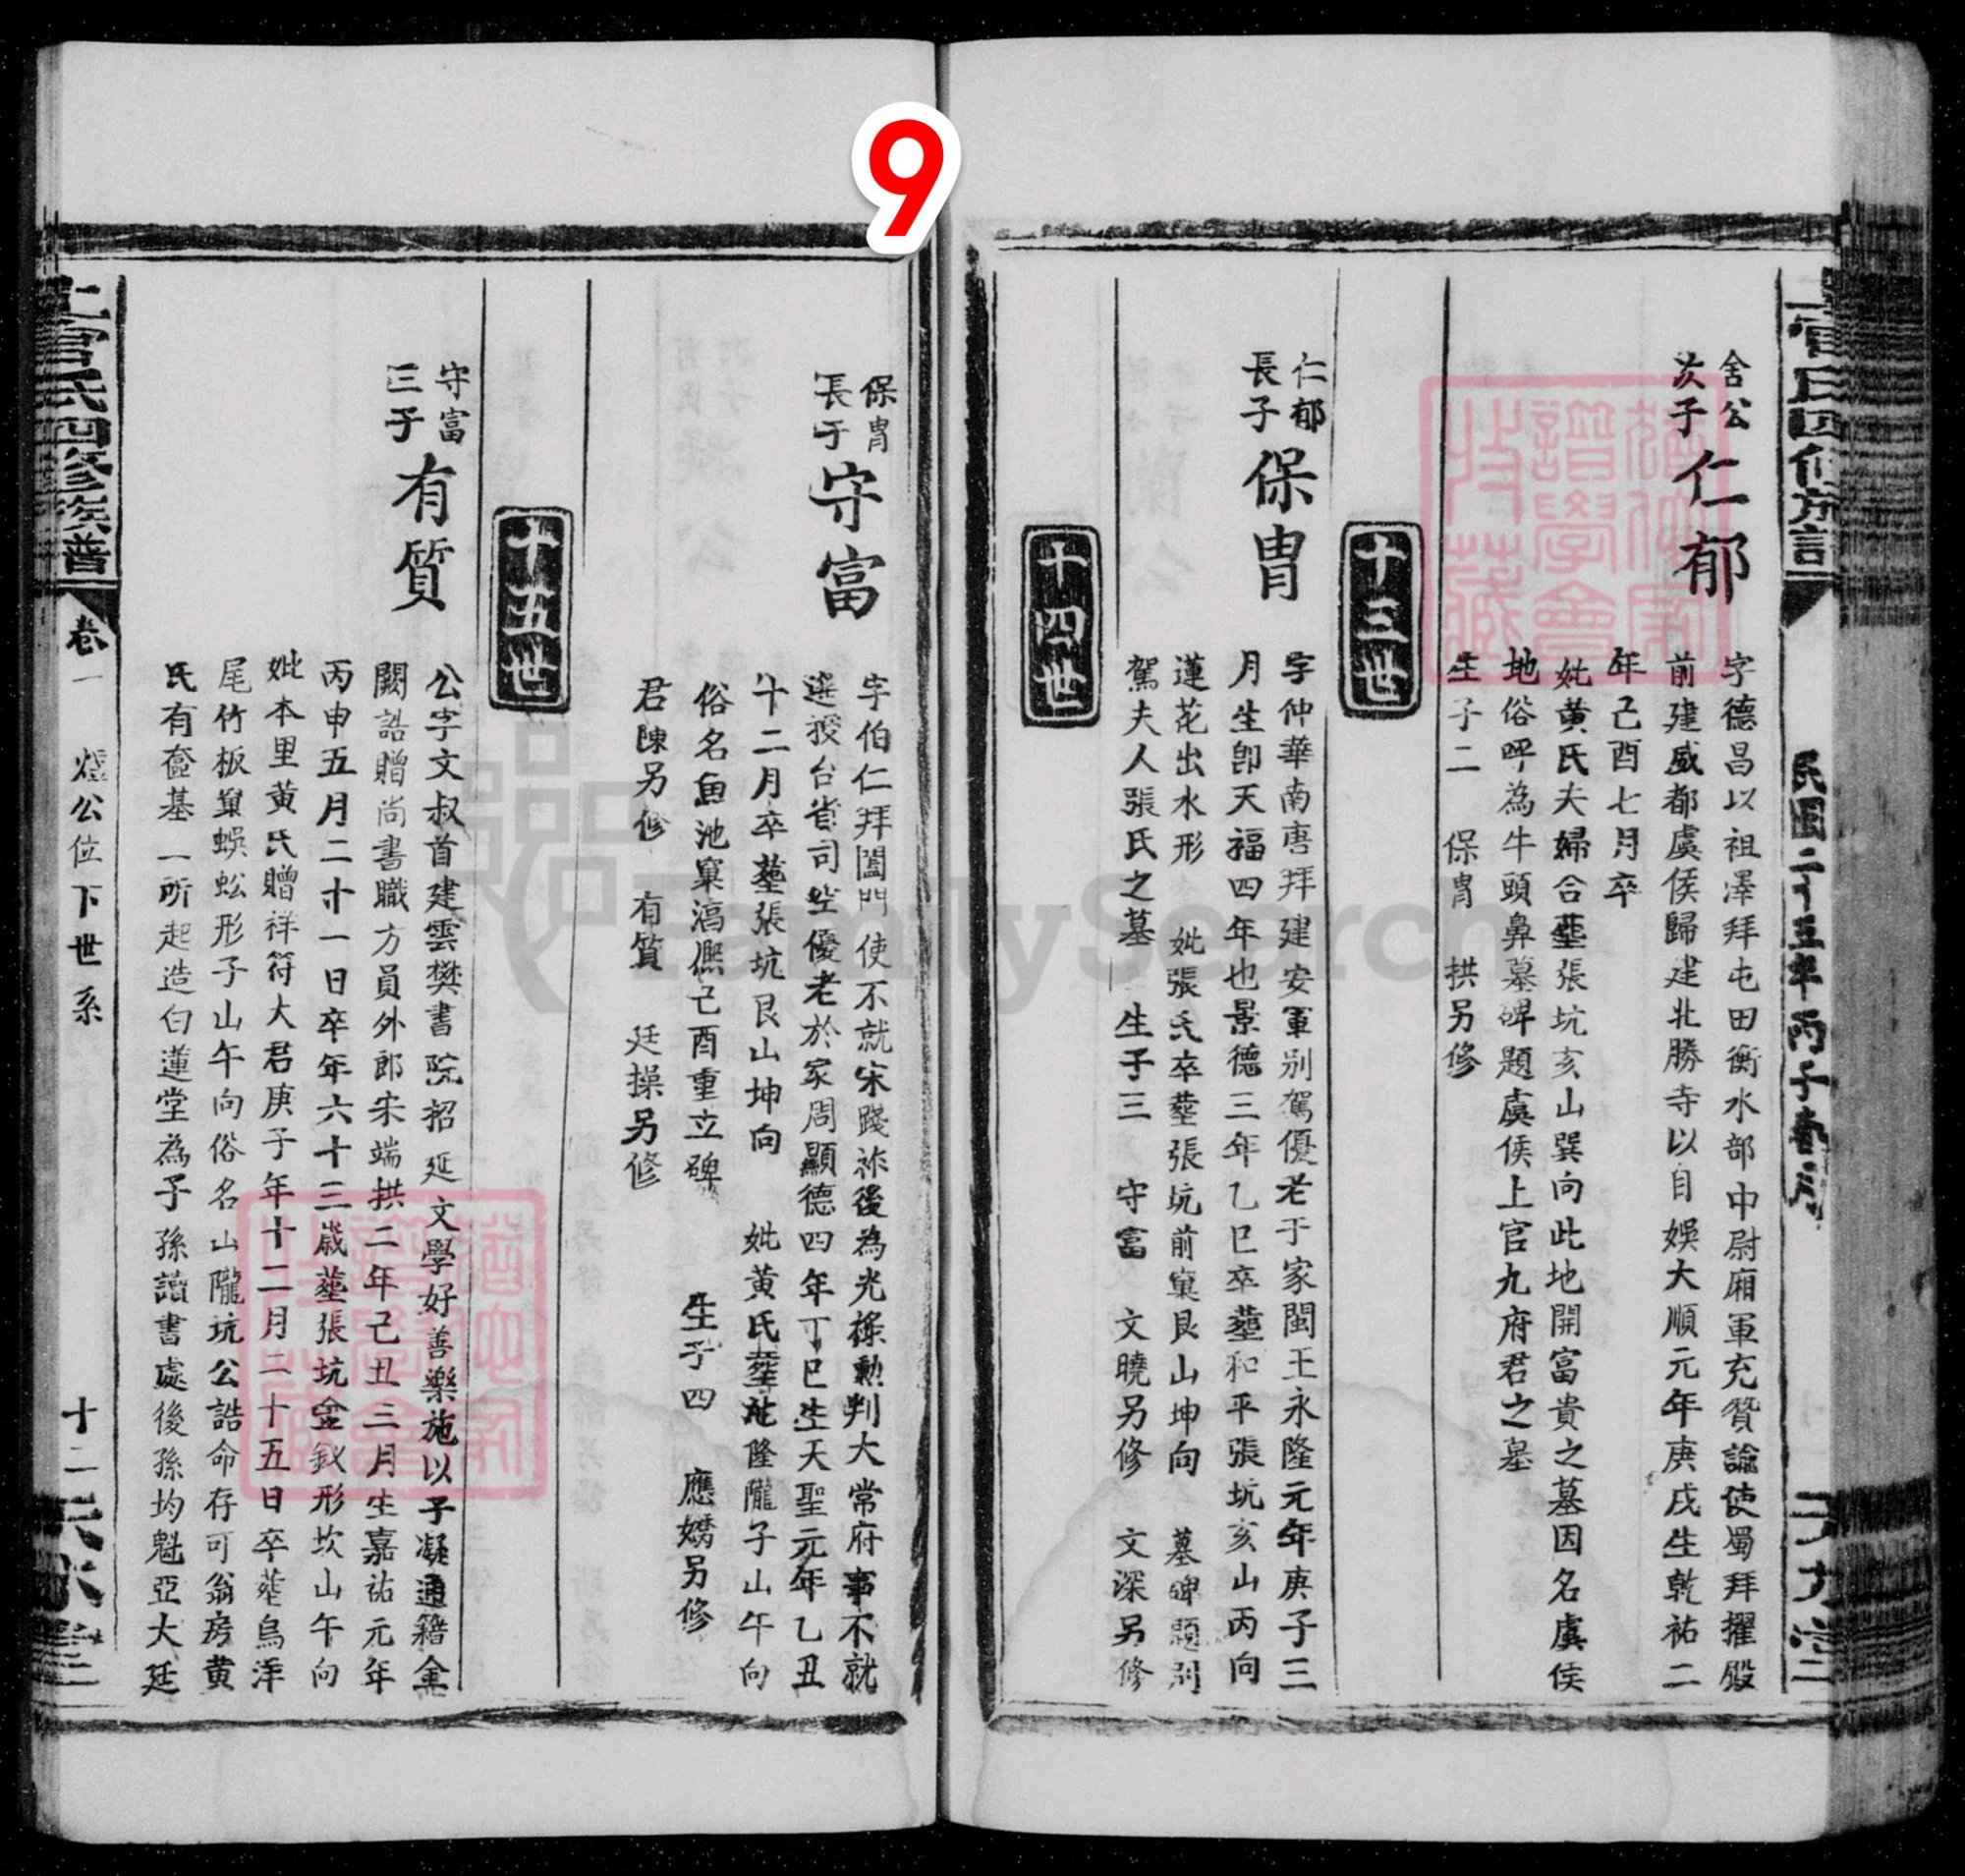 9
上官氏四修族譜
民國二十五年丙子春月
天水堂
舍公
次子
仁郁
字德昌以祖澤拜屯田衡水部中尉廂軍充贊諭使蜀拜擢殿
前建威都虞侯歸建北勝寺以自娛大順元年庚戌生乾祐二
年己酉七月卒
妣黃氏夫婦合塟張坑亥山巽向此地開富貴之墓因名虞侯
地俗呼為牛頭鼻墓碑題虞侯上官九府君之墓
生子二 保冑 拱另修
十三世
仁郁
長子
保冑
字仲華南唐拜建安軍別駕優老于家閩王永隆元年庚子三
月生卽天福四年也景德三年乙巳卒塟和平張坑亥山丙向
蓮花出水形 妣張氏卒塟張坑前窠艮山坤向 墓碑題別
駕夫人張氏之墓 生子三 守富 文曉另修 文深另修
十四世
保冑
長子
守富
字伯仁拜閣門使不就宋踐祚後為光祿勳判大常府事不就
選授台省司空優老於家周顯德四年丁巳生天聖元年乙丑
十二月卒塟張坑艮山坤向 妣黃氏塟隆隴子山午向
俗名魚池窠己酉重立碑 生子四 應嬌另修
君陳另修 有質 廷操另修
十五世
守富
三子
有質
公字文叔首建雲樊書院招延文學好善樂施以子凝通籍金
闕誥贈尚書職方員外郎宋端拱二年己丑三月生嘉祐元年
丙申五月二十一日卒年六十三歲塟張坑金釵形坎山午向
妣本里黃氏贈祥符大君庚子年十二月二十五日卒塟烏洋
尾竹板巢蜈蚣形子山午向俗名山隴坑公誥命存可翁房黃
氏有奩基一所起造白蓮堂為子孫讀書處後孫均魁亞大廷
上官氏四修族普
卷一 公位下世系
十二
天水堂
FamilySearch